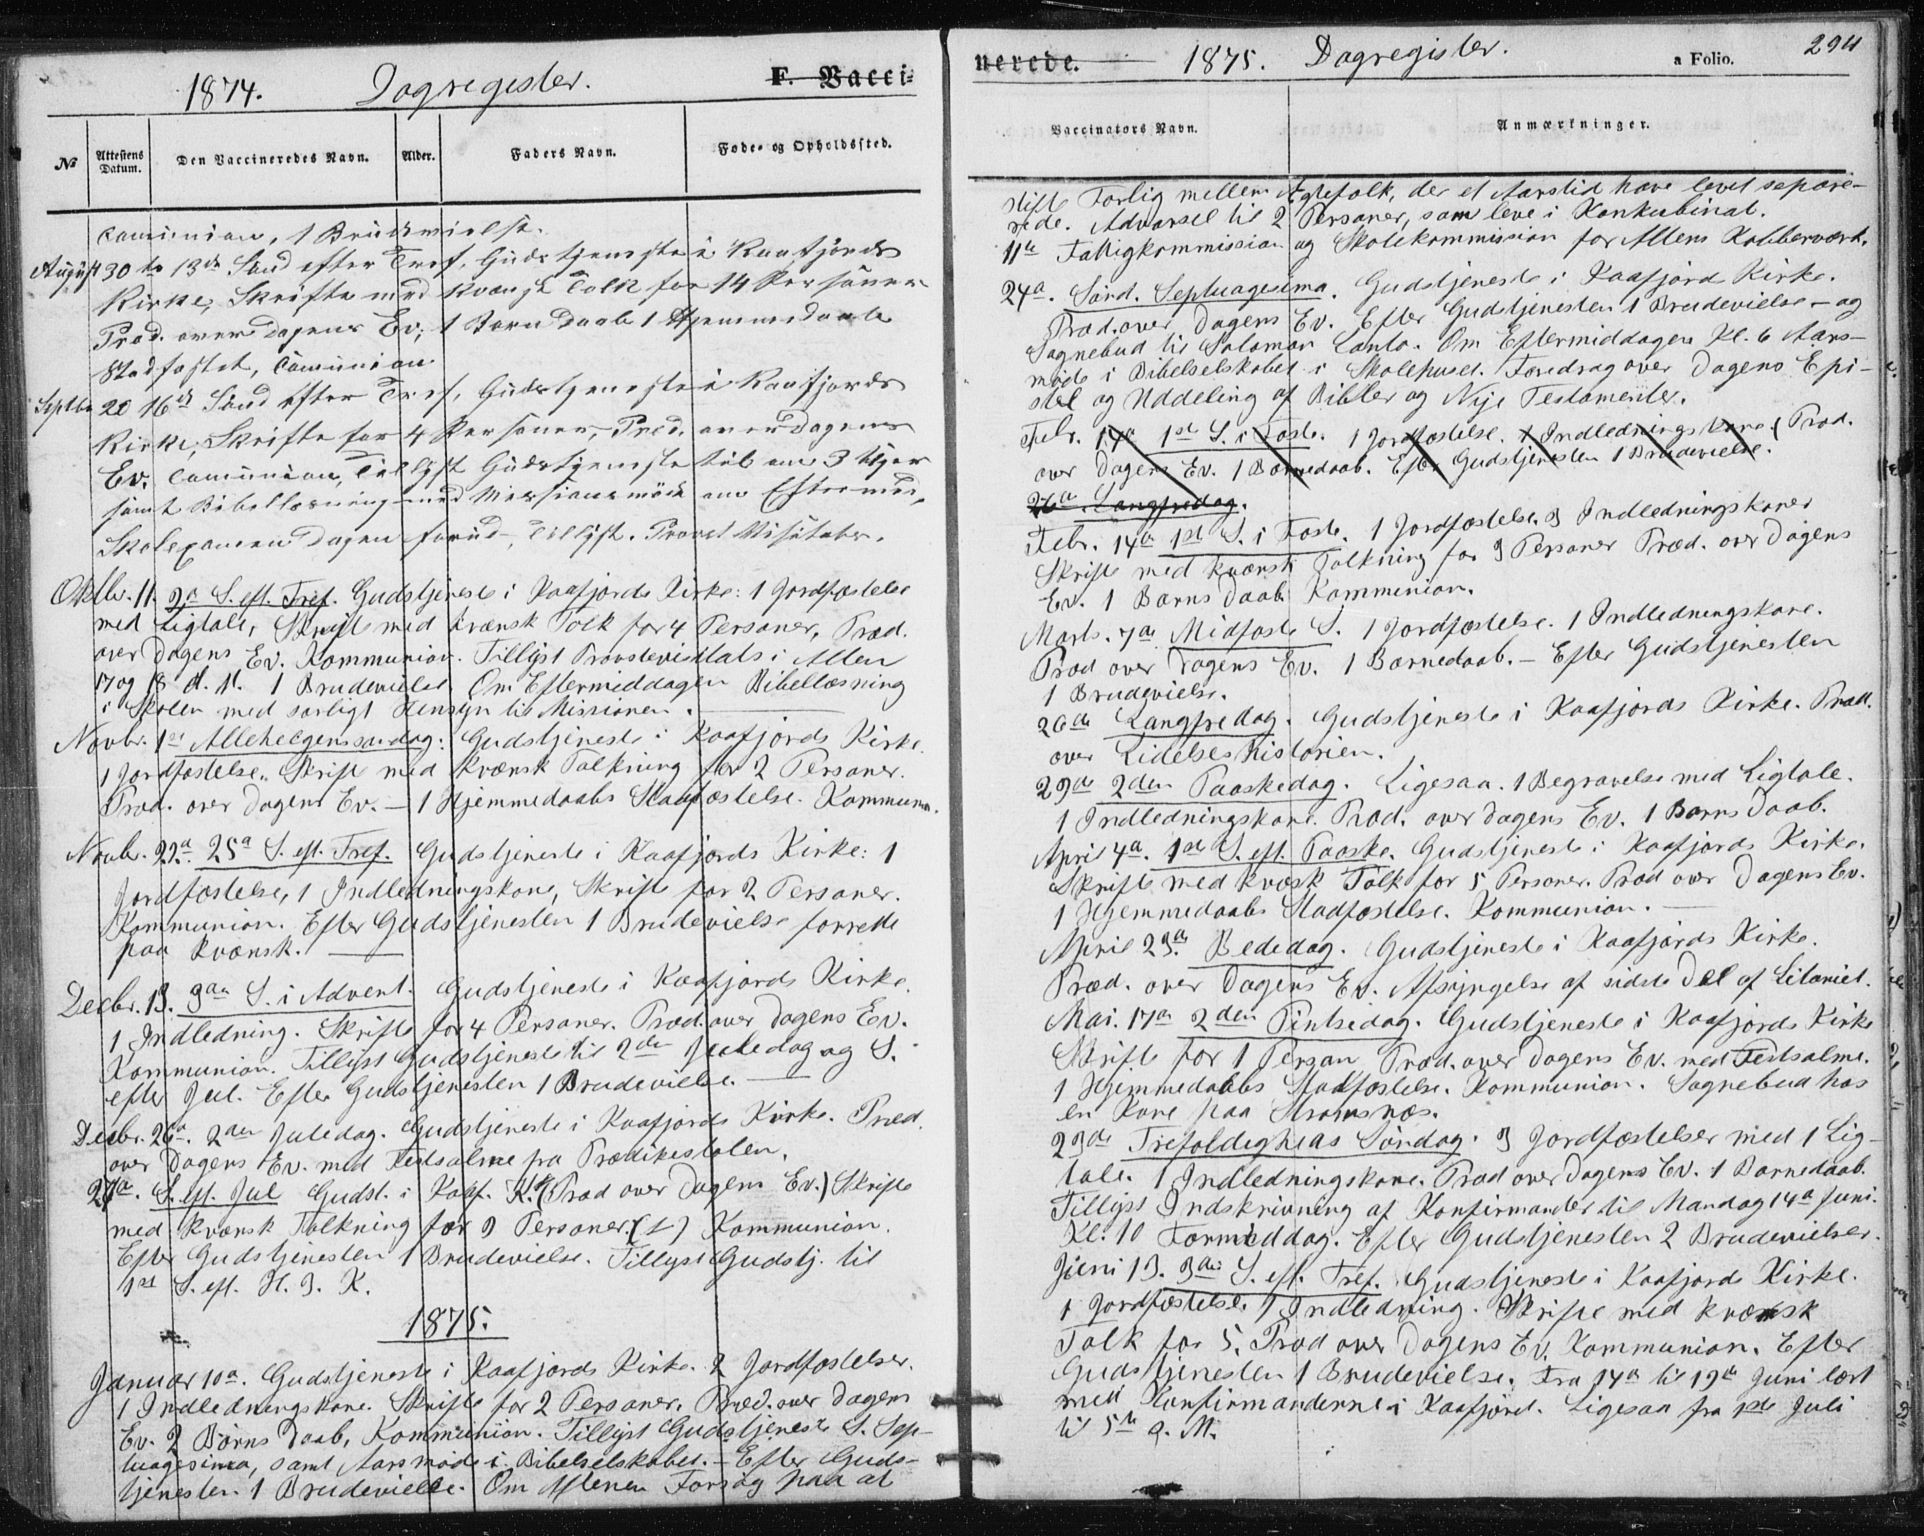 1874. Dagregister. F. Vacci-
№ Attestens Datum. Den Vaccineredes Navn. Alder. Faders Navn. Føde- og Opholdssted.
Communion, 1 Brudevielse.
August 30te 13de Sønd efter Tref. Gudstjeneste i Kaafjords
Kirke, Skrifte med kvænsk Tolk for 14 Personer
Præd. over Dagens Ev; 1 Barn Daab 1 Hjemmedaab
Stadfæstet, Communion
Septbr 20 16de Sønd efter Tref. Gudstjeneste i Kaafjords
Kirke, Skrifte for 4 Personer, Præd. over Dagens
Ev. Communion, Tillyst Gudstjeneste til om 3 Uger
samt Bibellæsning med Missionsmöde om Eftermid,
Skolexamen Dagen forud, tillyst. Provst Visitats.
Oktbr. 11. 19de S. eft. Tref. Gudstjeneste i Kaafjords Kirke: 1 Jordfæstelse
med Ligtale, Skrifte med kvænsk Tolk for 4 Personer, Præd.
over Dagens Ev. Kommunion. Tillyst Provstevisitats i Alten
17 og 18 d. M. 1 Brudevielse. Om Eftermiddagen Bibellæsning
i Skolen med særligt Hensyn til Missionen.
Novbr. 1ste Allehelgenssøndag: Gudstjeneste i Kaafjords Kirke.
1 Jordfæstelse. Skrifte med kvænsk Tolkning for 2 Personer.
Præd. over Dagens Ev. — 1 Hjemmedaabs Stadfæstelse. Kommunion.
Novbr. 22de 25de S. eft. Tref. Gudstjeneste i Kaafjords Kirke: 1
Jordfæstelse, 1 Indledningskone, Skrifte for 2 Personer.
Kommunion. Efter Gudstjenesten 1 Brudevielse forrett
paa kvænsk.
Decbr. 13. 3die S. i Advent. Gudstjeneste i Kaafjords Kirke.
1 Indledning. Skrifte for 4 Personer. Præd. over Dagens Ev.
Kommunion. Tillyst Gudstjeneste til 2den Juledag og S.
efter Jul. Efter Gudstjenesten 1 Brudevielse.
Decbr. 26de. 2den Juledag. Gudstjeneste i Kaafjords Kirke. Præd.
over Dagens Ev. med Festsalme fra Prædikestolen.
27de. S. eft. Jul Gudst. i Kaaf. K. (Præd over Dagens Ev.) Skrifte
med kvænsk Tolkning for 9 Personer. (⊥) Kommunion.
Efter Gudstjenesten 1 Brudevielse. Tillyst Gudstj. til
1ste S. eft. H. 3. K.
1875.
Januar 10de. Gudstjeneste i Kaafjords Kirke. 2 Jordfæstelser.
1 Indledningskone. Skrifte for 2 Personer. Præd. over Dagens
Ev. 2 Børns Daab, Kommunion. Tillyst Gudstjeneste S. Sep-
tuagesima, samt Aarsmøde i Bibelselskabet. — Efter Guds-
tjenesten 1 Brudevielse. Om Aftenen Forsøg paa at
nerede. 1875. Dagregister. a Folio. 294
Vaccinators Navn. Anmærkninger.
stifte Forlig mellem Ægtefolk, der et Aarstid have levet separe-
rede. Advarsel til 2 Personer, som leve i Konkubinat.
11te Fattigkommission og Skolekommission for Altens Kobberværk.
24de. Sønd. Septuagesima. Gudstjeneste i Kaafjord Kirke.
Præd. over Dagens Ev. Efter Gudstjenesten 1 Brudevielse — og
Sognebud til Salomon Lanto. Om Eftermiddagen Kl. 6 Aars-
møde i Bibelselskabet i Skolehuset. Foredrag over Dagens Epi-
stel og Uddeling af Bibler og Nye Testamenter.
Febr. 14de 1ste S. i Faste. 1 Jordfæstelse. 1 Indledningskone Præd.
over Dagens Ev. 1 Barnedaab. Efter Gudstjenesten 1 Brudevielse.
26de. Langfredag.
Febr. 14de 1ste S. i Faste. 1 Jordfæstelse. 3 Indledningskoner
Skrifte med kvænsk Tolkning for 3 Personer Præd. over Dagens
Ev. 1 Barns Daab Kommunion.
Marts. 7de Midfaste S. 1 Jordfæstelse. 1 Indledningskone.
Præd over Dagens Ev. 1 Barnedaab. — Efter Gudstjenesten
1 Brudevielse.
26de Langfredag. Gudstjeneste i Kaafjords Kirke. Præd.
over Lidelseshistorien.
29de 2den Paaskedag. Ligesaa. 1 Begravelse med Ligtale.
1 Indledningskone. Præd. over Dagens Ev. 1 Barns Daab.
April 4de. 1ste S. eft. Paaske. Gudstjeneste i Kaafjords Kirke.
Skrifte med kvæsk Tolk for 5 Personer. Præd over Dagens Ev.
1 Hjemmedaabs Stadfæstelse. Kommunion.
April 23de. Bededag. Gudstjeneste i Kaafjords Kirke.
Præd. over Dagens Ev. Afsyngelse af sidste Del af Litaniet.
Mai. 17de 2den Pintsedag. Gudstjeneste i Kaafjords Kirke
Skrifte for 1 Person Præd. over Dagens Ev. med Festsalme.
1 Hjemmedaabs Stadfæstelse. Kommunion. Sognebud hos
en Kone paa Strømsnæs.
23de Trefoldigheds Søndag. 3 Jordfæstelser med 1 Lig-
tale. 1 Indledningskone. Præd over Dagens Ev. 1 Barnedaab.
Tillyst Indskrivning af Konfirmander til Mandag 14de Juni.
Kl: 10 Formiddag. Efter Gudstjenesten 2 Brudevielser.
Juni 13. 3die S. eft. Tref. Gudstjeneste i Kaafjords Kirke.
1 Jordfæstelse, 1 Indledning. Skrifte med kvænsk
Tolk for 5. Præd over Dagens Ev. Kommunion. Efter
Gudstjenesten 1 Brudevielse. Fra 14de til 19de Juni læst
med Konfirmanderne i Kaafjord. Ligesaa fra 1ste Juli
til 5te s. M.